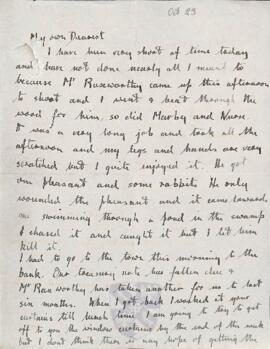 Oct 23
My own Dearest
I have been very short of time today
and have not done nearly all I meant to
because Mr came up this afternoon
to shoot and I went & beat through the
wood for him, so did and
It was a very long job and took all the
afternoon and my legs and hands are very
scratched but I quite enjoyed it. He got
one pheasant and some rabbits. He only
wounded the pheasant and it came towards
me swimming through a pond in the swamp
I chased it and caught it but I let him
kill it.
I had to go to the town this morning to the
bank. Our treasury note has fallen due &
Mr has taken another for us to last
six months. When I got back I washed it your
curtains till lunch time. I am going to try to get
off to you the window curtains by the end of the week
but I don't think there is any hope of getting the